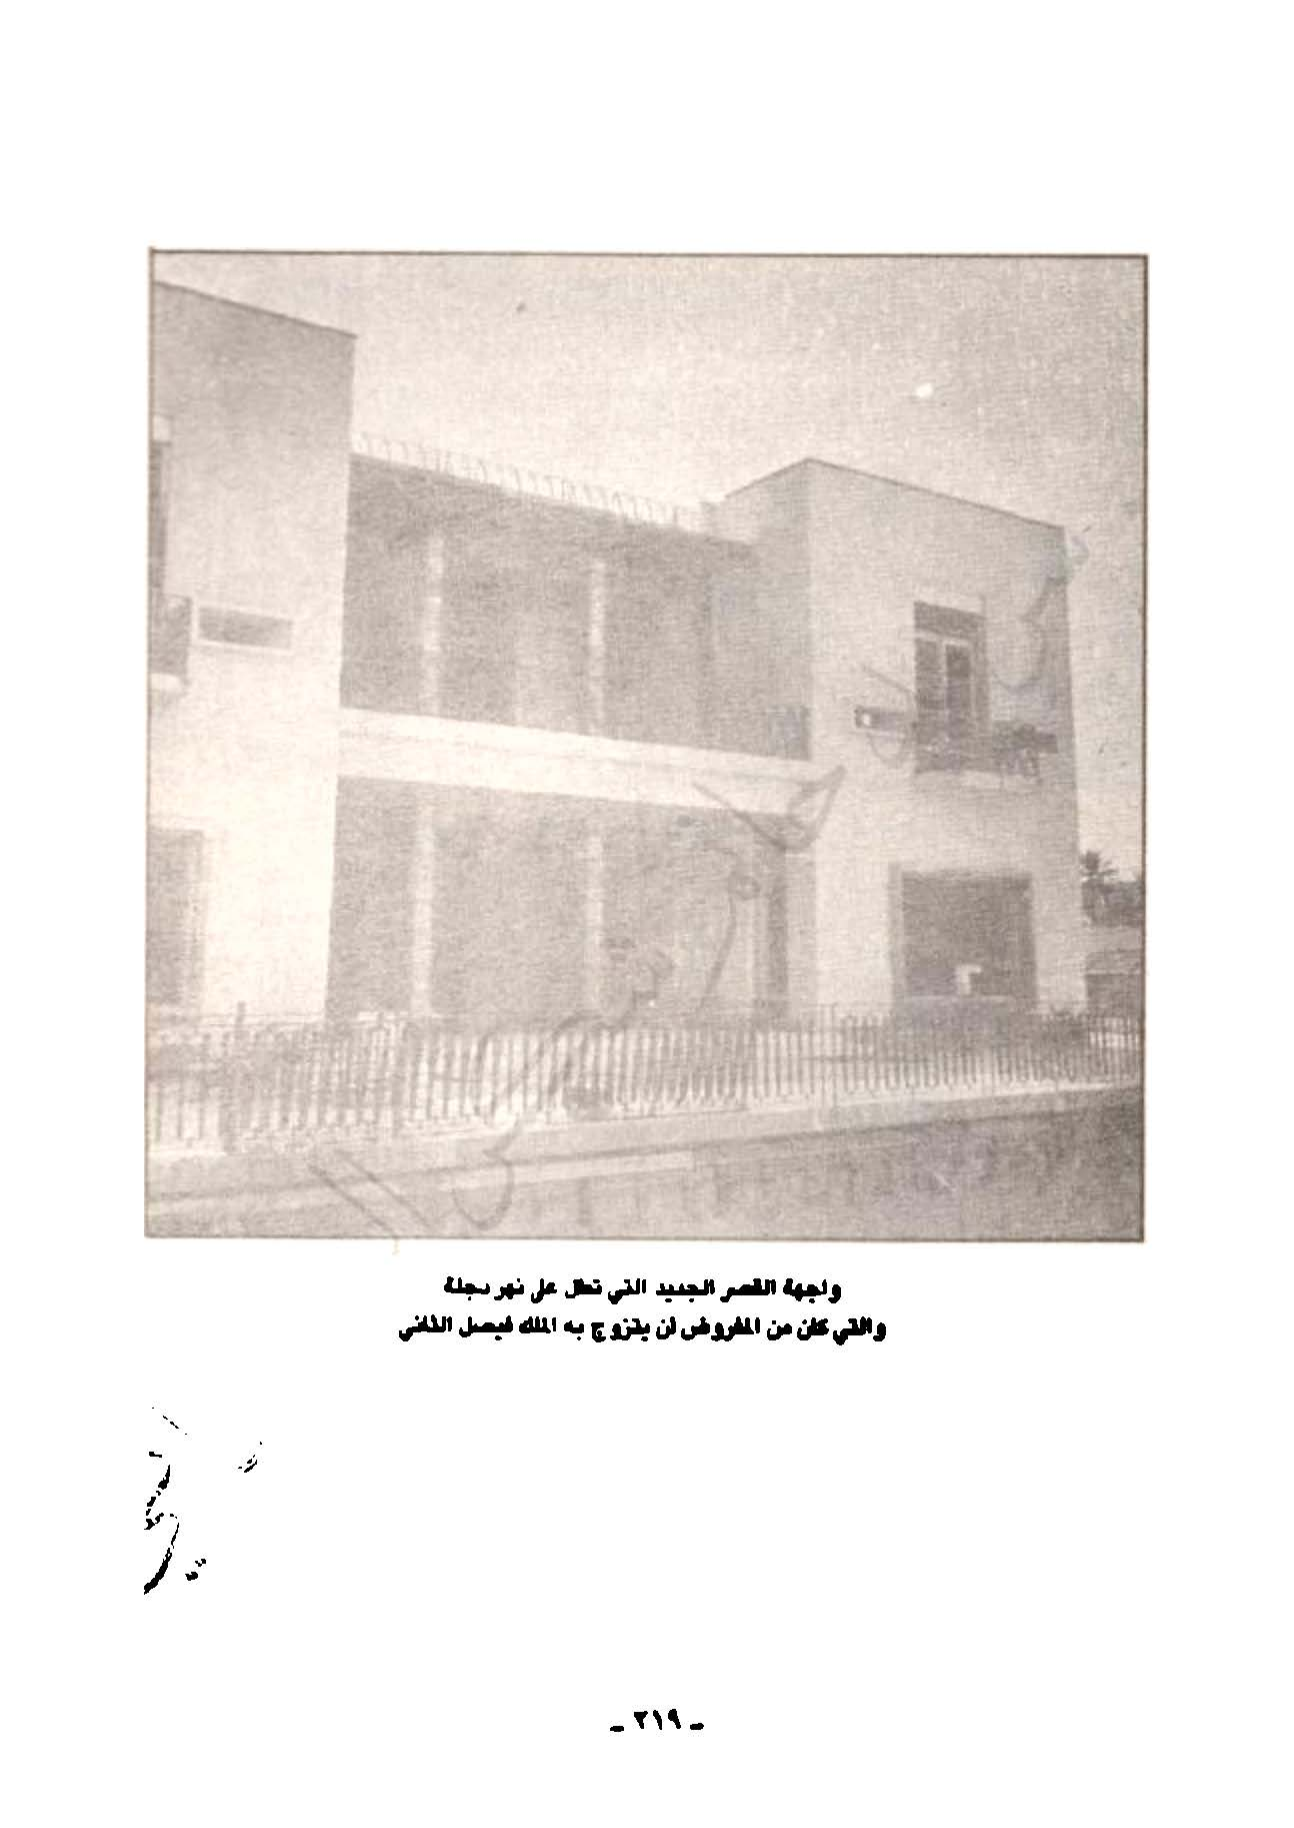 واجهة القصر الجديد التي تطل على نهر دجلة
والتي كان من المفروض أن يتزوج به الملك فيصل الثاني
ـ ٢١٩ ـ